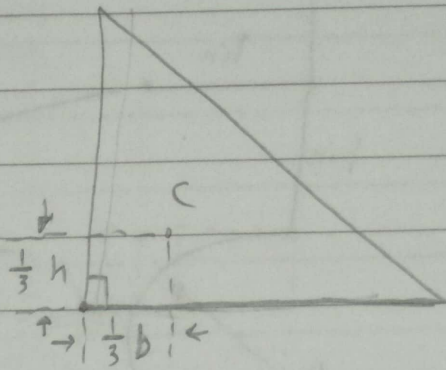 C
1/3 h
1/3 b